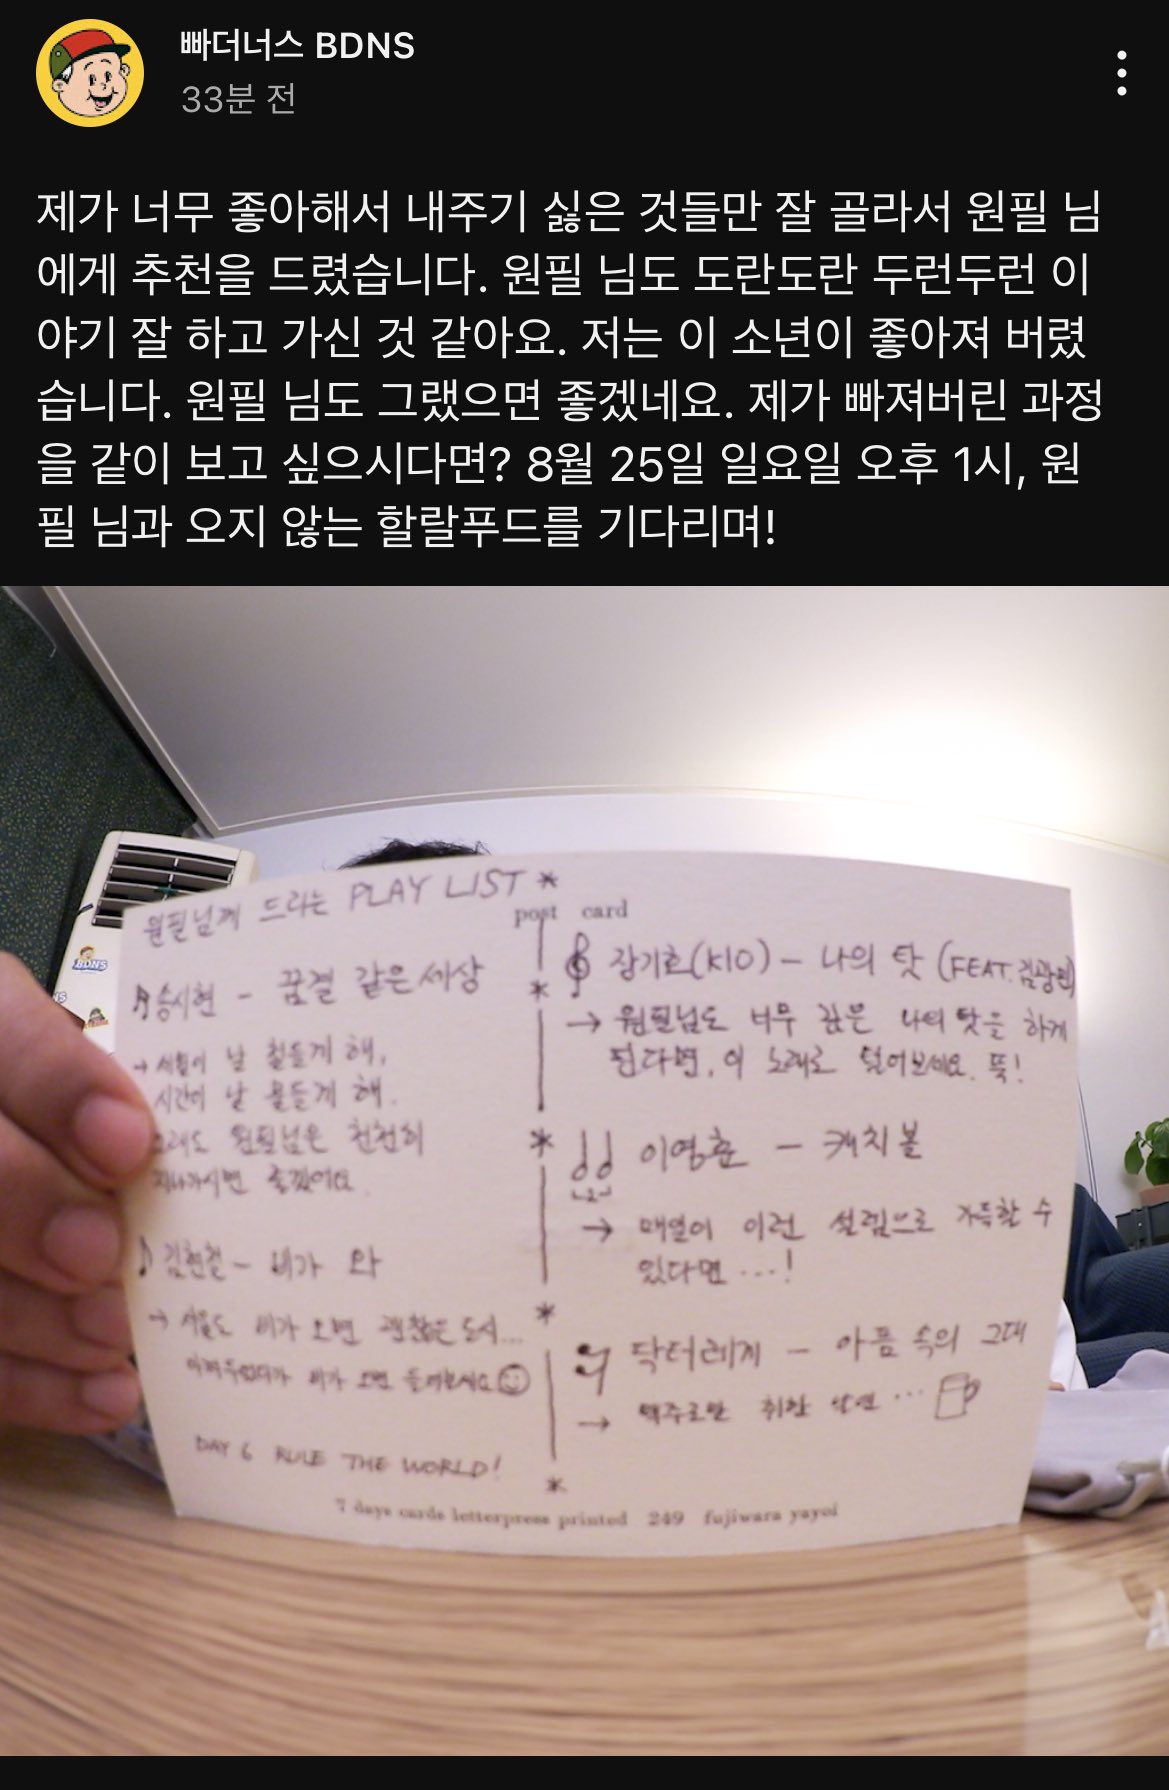 빠더너스 BDNS
33분 전
제가 너무 좋아해서 내주기 싫은 것들만 잘 골라서 원필 님
에게 추천을 드렸습니다. 원필 님도 도란도란 두런두런 이
야기 잘 하고 가신 것 같아요. 저는 이 소년이 좋아져 버렸
습니다. 원필 님도 그랬으면 좋겠네요. 제가 빠져버린 과정
을 같이 보고 싶으시다면? 8월 25일 일요일 오후 1시, 원
필 님과 오지 않는 할랄푸드를 기다리며!
원필님께 드리는 PLAY LIST
송시현 - 꿈결 같은 세상
→ 세월이 날 철들게 해,
시간이 날 물들게 해.
그래도 원필님은 천천히
지나가시면 좋겠어요
김현철 - 비가 와
→ 서울도 비가 오면 괜찮은 도시...
비가 오면 들어보세요
DAY 6 RULE THE WORLD!
post card
장기호(KIO) - 나의 탓 (FEAT. 김광민)
→ 원필님도 너무 많은 나의 탓을 하게
된다면, 이 노래로 털어보세요. 뚝!
이영훈 - 캐치볼
→ 매일이 이런 설렘으로 가득할 수
있다면 ...!
닥터레게 - 아픔 속의 그대
→ 맥주로만 취한 날엔 ...
7 days cards letterpress printed 249 fujiwara yayoi
BDNS